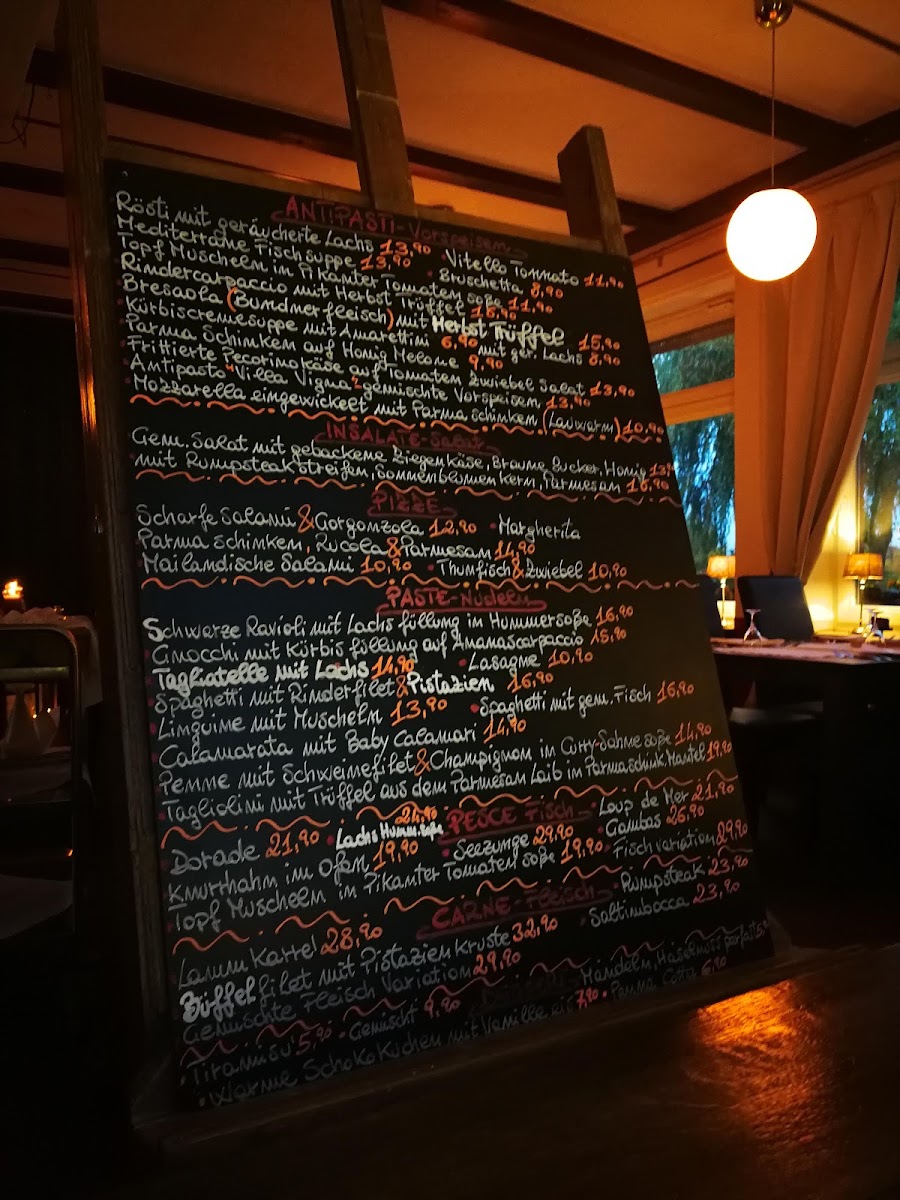 ANTIPASTI-Vorspeisen
Rösti mit geräucherte Lachs 13,90 • Vitello Tonnato 11,90
Mediterrane Fischsuppe 13,90 • Bruschetta 8,90
Topf Muscheln in Pikanter Tomaten soße 11,90
Rindercarpaccio mit Herbst Trüffel 16,90
Bresaola (Bündnerfleisch) mit Herbst Trüffel 15,90
Kürbiscremesuppe mit Amarettini 6,90 mit ger. Lachs 8,90
Parma Schinken auf Honig Melone 9,90
Frittierte Pecorinokäse auf Tomaten Zwiebel Salat 13,90
Antipasto "Villa Vigna" gemischte Vorspeisen 13,90
Mozzarella eingewickelt mit Parma schinken (Lauwarm) 10,90
INSALATE-Salat
Gem. Salat mit gebackene Ziegenkäse, Braune Zucker, Honig
mit Rumpsteakstreifen, Sonnenblumen kern, Parmesan 16,90
PIZZE
Scharfe Salami & Gorgonzola 12,90 • Margherita
Parma Schinken, Rucola & Parmesan 14,90
Mailändische Salami 10,90 • Thunfisch & Zwiebel 10,90
PASTE-Nudeln
Schwarze Ravioli mit Lachs füllung in Hummersoße 16,90
Gnocchi mit Kürbis füllung auf Ananascarpaccio 15,90
Tagliatelle mit Lachs 14,90 • Lasagne 10,90
Spaghetti mit Rinderfilet & Pistazien 16,90
Linguine mit Muscheln 13,90 • Spaghetti mit gem. Fisch 16,90
Calamarata mit Baby Calamari 14,90
Penne mit Schweinefilet & Champignon in Curry-Sahne soße 14,90
Tagliolini mit Trüffel aus dem Parmesan Laib in Parmaschink. Mantel 19,90
PESCE Fisch
Dorade 21,90 • Lachs Humm. soße 24,90 • Loup de Mer 21,90
Knurrhahn im Ofen 19,90 • Seezunge 29,90 • Gambas 26,90
Topf Muscheln in Pikanter Tomaten soße 19,90 • Fischvariation 29,90
CARNE-Fleisch
Lamm Karrel 28,90 • Rumpsteak 23,90
Büffelfilet mit Pistazien Kruste 32,90 • Saltimbocca 23,90
Gemischte Fleisch Variation 29,90
• Mandeln, Haselnuss parfait
• Tiramisu' 5,90 • Gemischt 9,90
• Warme Schokokuchen mit Vanille eis 7,90 • Panna Cotta 6,90